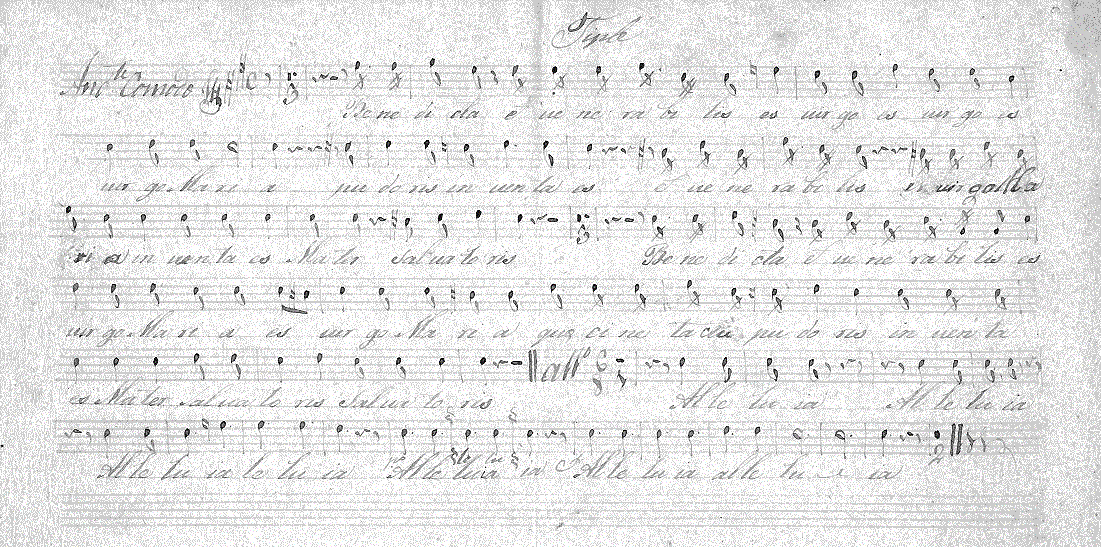 Tiple
And.te Comodo
Bene di cta e ue ne ra bi lis es uir go es uir go es
uir go Ma ri a pu do ris in uen ta es e ue ne ra bi lis uir go Ma
ri a in uen ta es Ma ter salua to ris Be ne di cta e ue ne ra bi lis es
uir go Ma ri a es uir go Ma ri a que ci ne ta ctu pu do ris in uen ta
es Ma ter salua to ris Salua to ris all.o Al le lu ia Al le lu ia
Al le lu ia le lu ia Al le lu ia ia Al le lu ia al le lu ia